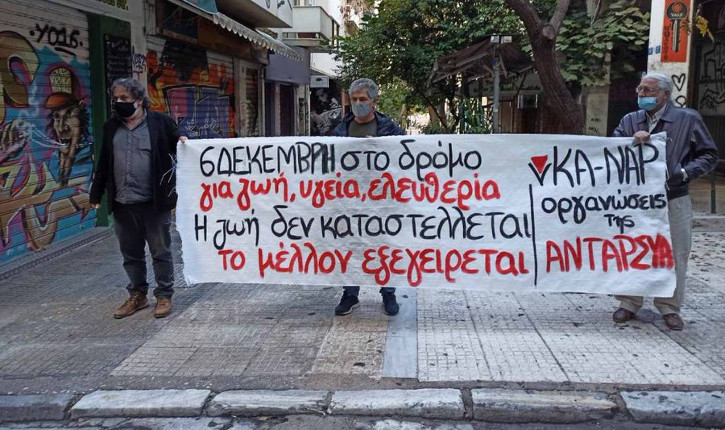 YO!6
6 ΔΕΚΕΜΒΡΗ στο δρόμο
για ζωή, υγεία, ελευθερία
Η ζωή δεν καταστέλλεται
το μέλλον εξεγείρεται
ΚΑ-ΝΑΡ
οργανώσεις
της
ΑΝΤΑΡΣΥΑ